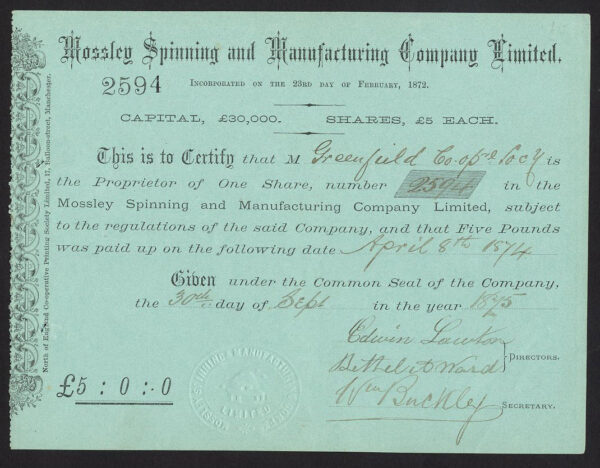 Mossley Spinning and Manufacturing Company Limited.
2594
Incorporated on the 23rd day of February, 1872.
CAPITAL, £30,000. SHARES, £5 EACH.
This is to Certify that M Greenfield Co-opve Socy is
the Proprietor of One Share, number 2594 in the
Mossley Spinning and Manufacturing Company Limited, subject
to the regulations of the said Company, and that Five Pounds
was paid up on the following date April 8th 1874
Given under the Common Seal of the Company,
the 30th day of Sept in the year 1875
Edwin Lawton
Ward
DIRECTORS.
Wm Buckley
SECRETARY.
£5 : 0 : 0
North of England Co-operative Printing Society Limited, 17, Balloon-street, Manchester.
SPINNING MANUFACTURING
LIMITED